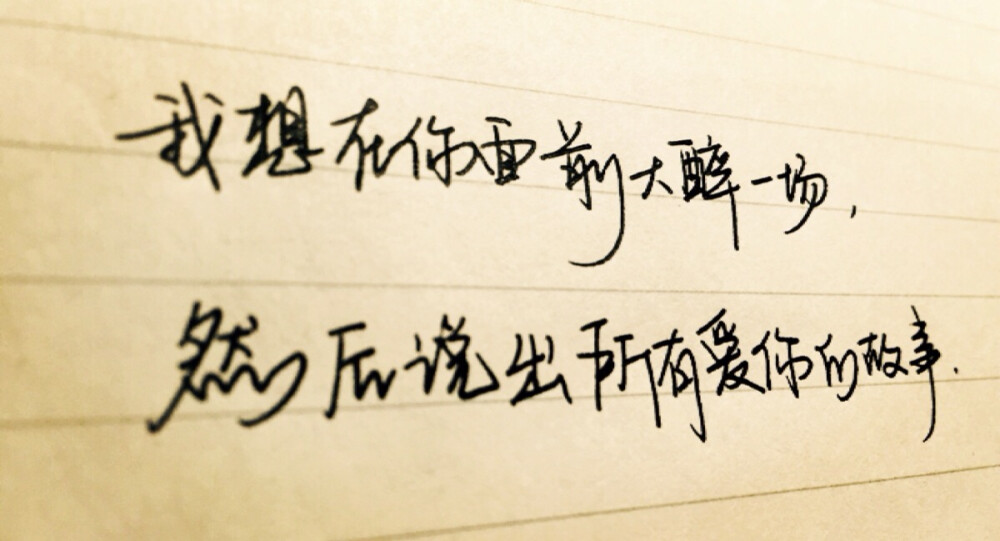 我想在你面前大醉一场，
然后说出所有爱你的故事.